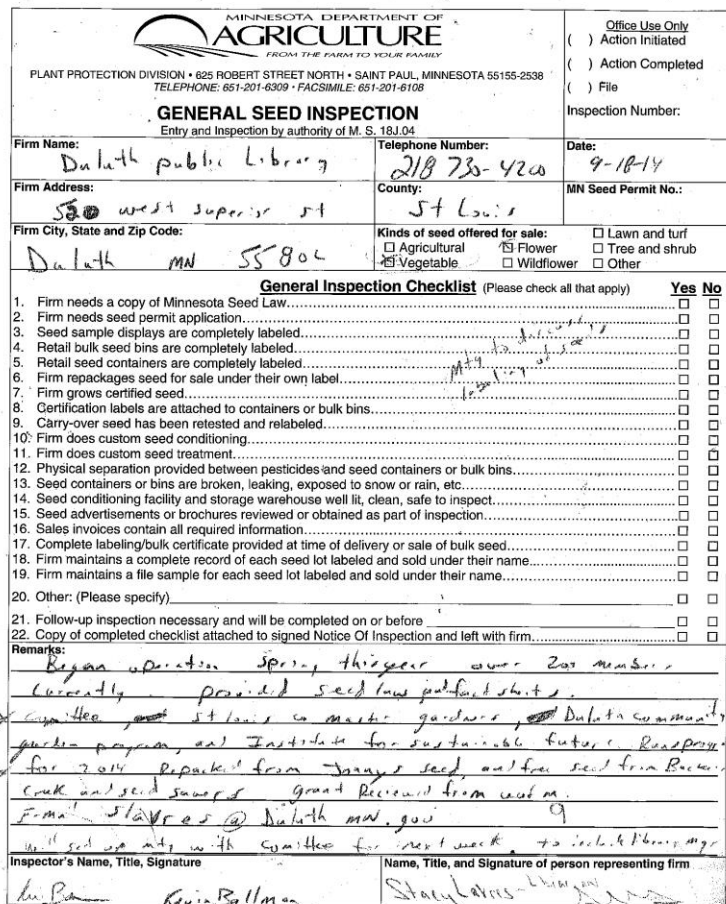 MINNESOTA DEPARTMENT OF
AGRICULTURE
FROM THE FARM TO YOUR FAMILY
PLANT PROTECTION DIVISION • 625 ROBERT STREET NORTH • SAINT PAUL, MINNESOTA 55155-2538
TELEPHONE: 651-201-6309 • FACSIMILE: 651-201-6108
GENERAL SEED INSPECTION
Entry and Inspection by authority of M. S. 18J.04
Office Use Only
( ) Action Initiated
( ) Action Completed
( ) File
Inspection Number:
Firm Name:
Duluth public Library
Telephone Number:
218 730-4200
Date:
9-18-14
Firm Address:
520 west superior st
County:
St Louis
MN Seed Permit No.:
Firm City, State and Zip Code:
Duluth MN 55802
Kinds of seed offered for sale:
☐ Agricultural ☒ Flower ☐ Lawn and turf
☒ Vegetable ☐ Wildflower ☐ Tree and shrub
☐ Other
General Inspection Checklist (Please check all that apply) Yes No
1. Firm needs a copy of Minnesota Seed Law
2. Firm needs seed permit application
3. Seed sample displays are completely labeled
4. Retail bulk seed bins are completely labeled
5. Retail seed containers are completely labeled
6. Firm repackages seed for sale under their own label
7. Firm grows certified seed
8. Certification labels are attached to containers or bulk bins
9. Carry-over seed has been retested and relabeled
10. Firm does custom seed conditioning
11. Firm does custom seed treatment
12. Physical separation provided between pesticides and seed containers or bulk bins
13. Seed containers or bins are broken, leaking, exposed to snow or rain, etc
14. Seed conditioning facility and storage warehouse well lit, clean, safe to inspect
15. Seed advertisements or brochures reviewed or obtained as part of inspection
16. Sales invoices contain all required information
17. Complete labeling/bulk certificate provided at time of delivery or sale of bulk seed
18. Firm maintains a complete record of each seed lot labeled and sold under their name
19. Firm maintains a file sample for each seed lot labeled and sold under their name
Mtg to discuss
labeling of seeds
20. Other: (Please specify)
21. Follow-up inspection necessary and will be completed on or before
22. Copy of completed checklist attached to signed Notice Of Inspection and left with firm
Remarks:
Began operation spring this year over 200 members
currently. provided seed laws and fact sheets.
Committee, St louis co master gardners, Duluth community
garden program, and Institute for sustainable future.
for 2014 Repacked from seed, and free seed from Baker
Creek and seed savers grant Recieved from
Email slavres@Duluth mn.gov
will set up mtg with Comittee for next week. to include library mgr
Inspector's Name, Title, Signature
Kevin Ballman
Name, Title, and Signature of person representing firm
Stacy Lavres - Librarian